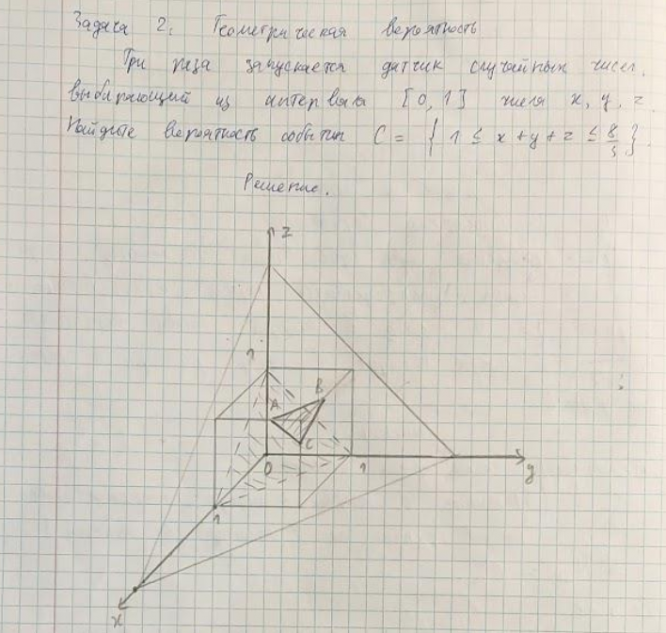 Задача 2. Геометрическая вероятность
Три раза запускается датчик случайных чисел,
выбирающий из интервала [0, 1] числа x, y, z.
Найдите вероятность события C = { 1 ≤ x + y + z ≤ 8/5 }.
Решение.
z
1
A
B
C
0
1
y
1
x